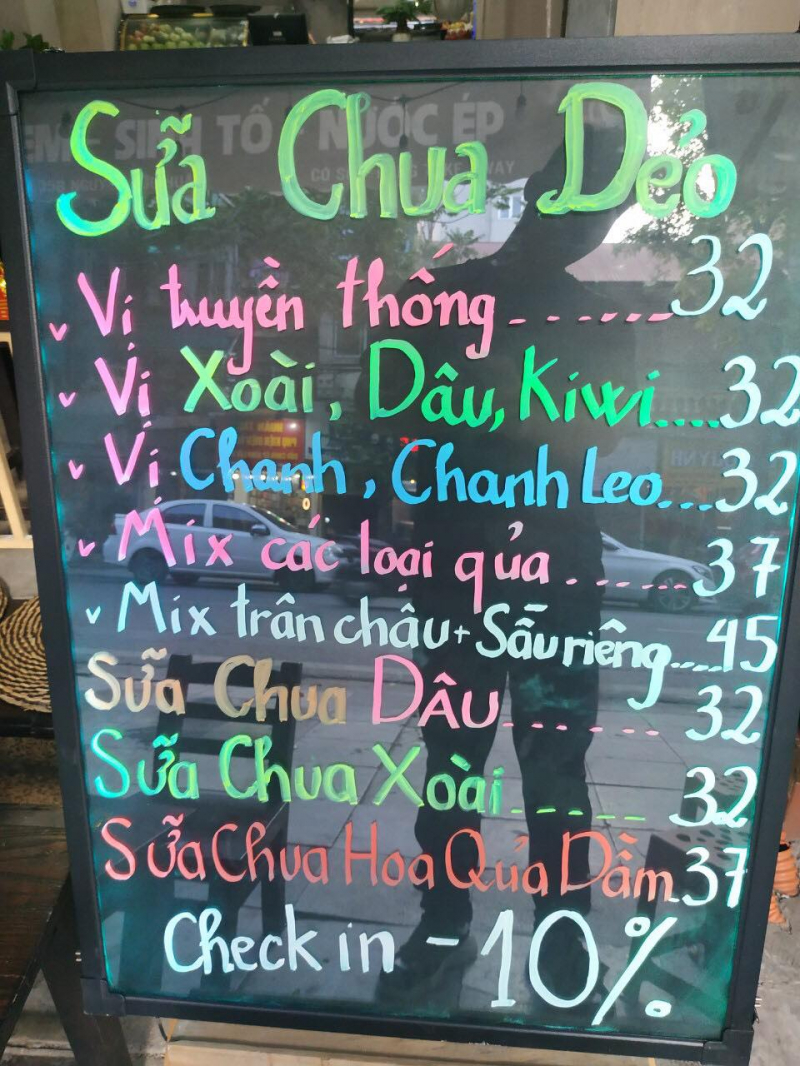 Sữa Chua Dẻo
Vị truyền thống 32
Vị Xoài, Dâu, Kiwi 32
Vị Chanh, Chanh Leo 32
Mix các loại qủa 37
Mix trân châu + Sầu riêng 45
Sữa Chua Dâu 32
Sữa Chua Xoài 32
Sữa Chua Hoa Quả Dầm 37
Check in - 10%
SINH TỐ NƯỚC ÉP